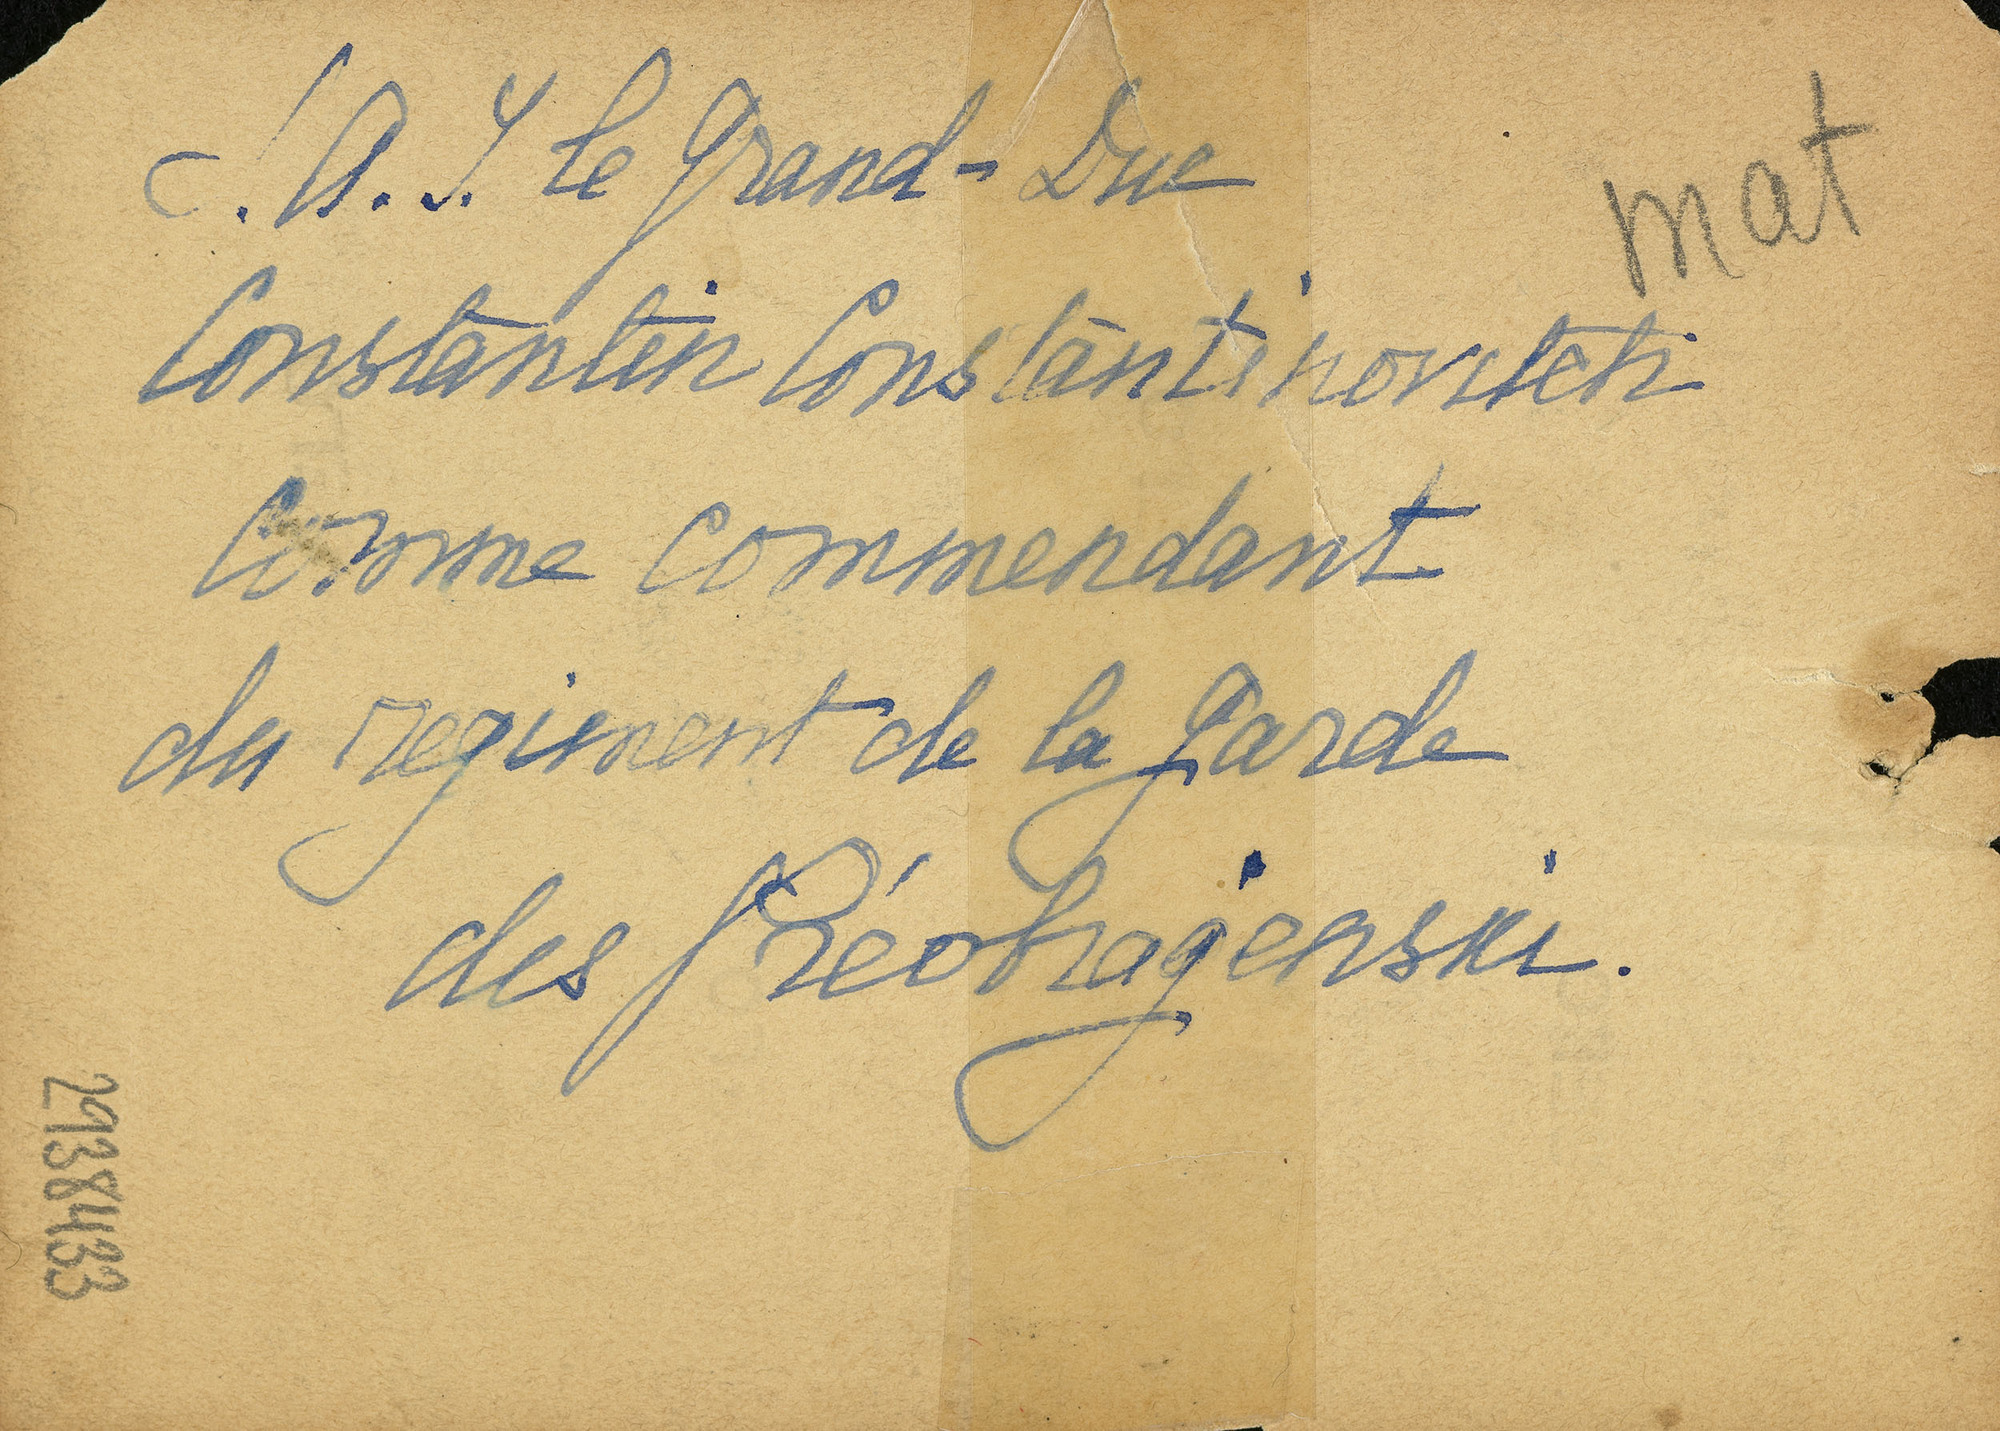 S. A. I. le Grand-Duc
mat
Constantin Constantinovitch
Comme commendant
du regiment de la garde
des Préobrajenski.
2938433